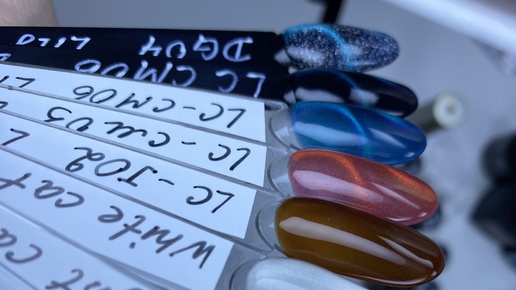 DGU4
LILI
LC CM06
LC-CM06
LC-CM05
LC-J02
White cat